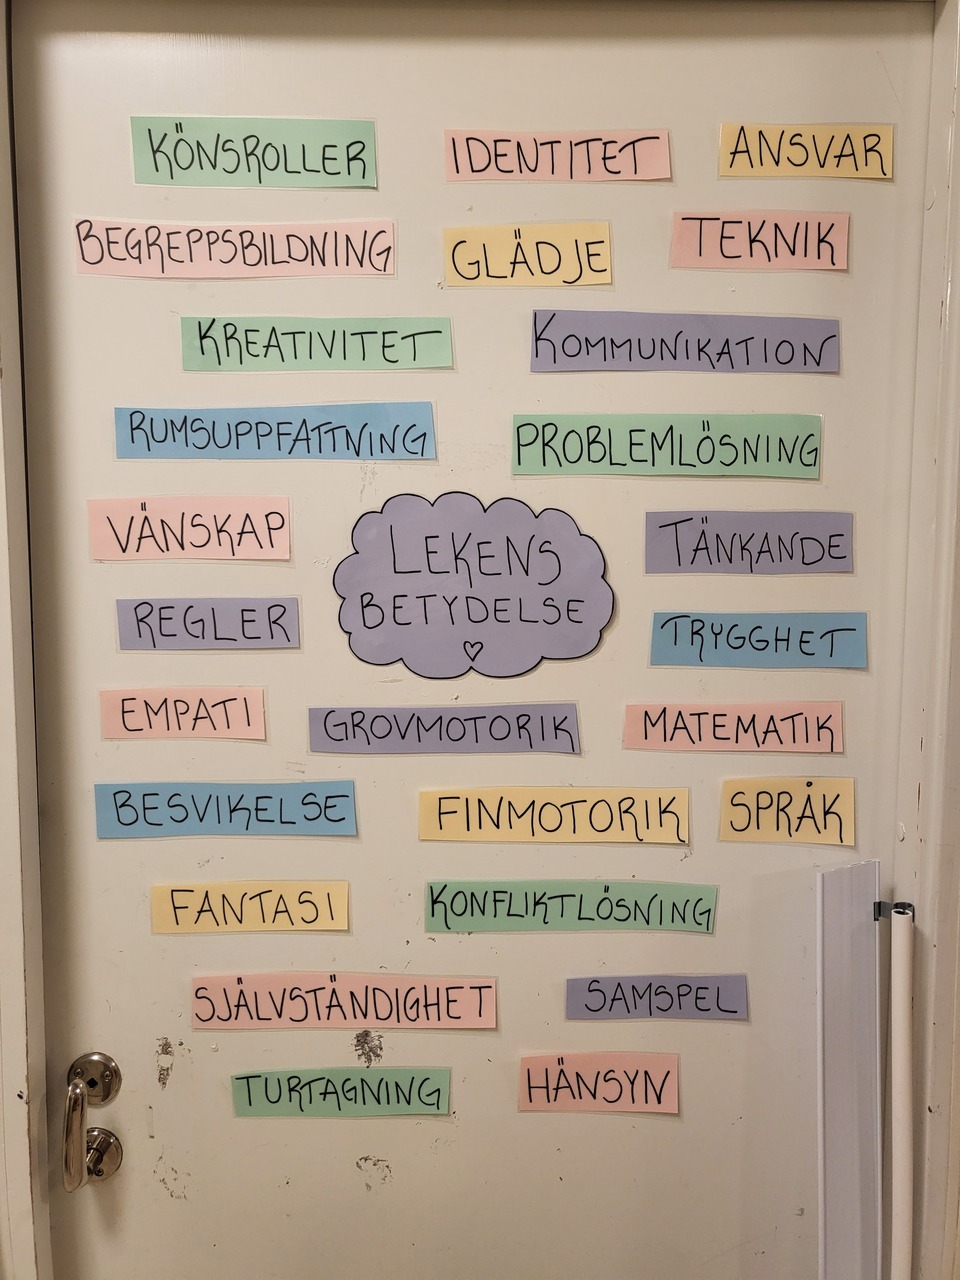 KÖNSROLLER
IDENTITET
ANSVAR
BEGREPPSBILDNING
GLÄDJE
TEKNIK
KREATIVITET
KOMMUNIKATION
RUMSUPPFATTNING
PROBLEMLÖSNING
VÄNSKAP
LEKENS
BETYDELSE
TÄNKANDE
REGLER
TRYGGHET
EMPATI
GROVMOTORIK
MATEMATIK
BESVIKELSE
FINMOTORIK
SPRÅK
FANTASI
KONFLIKTLÖSNING
SJÄLVSTÄNDIGHET
SAMSPEL
TURTAGNING
HÄNSYN